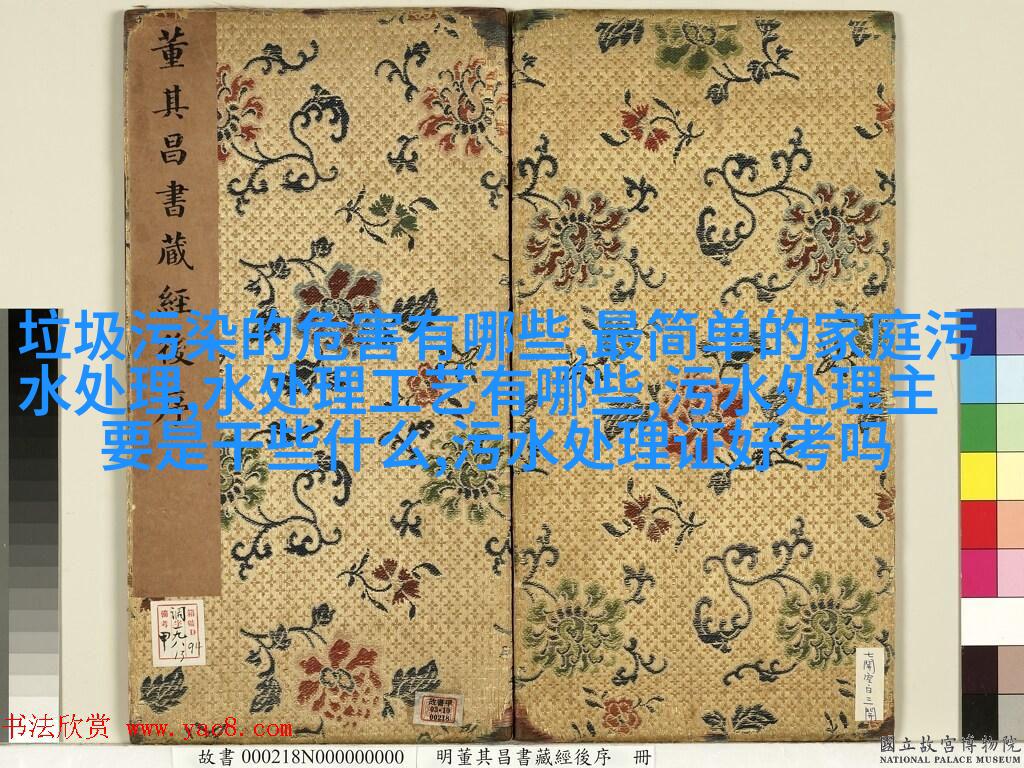 董其昌書藏經後序
垃圾污染的危害有哪些,最简单的家庭污
水处理,水处理工艺有哪些,污水处理主
要是干些什么,污水处理证好考吗
故書甲
03•10
00218
七開空白三開
书法欣赏 www.yac8.com
故書 000218N000000000 明董其昌書藏經後序 冊
國立故宮博物院
NATIONAL PALACE MUSEUM